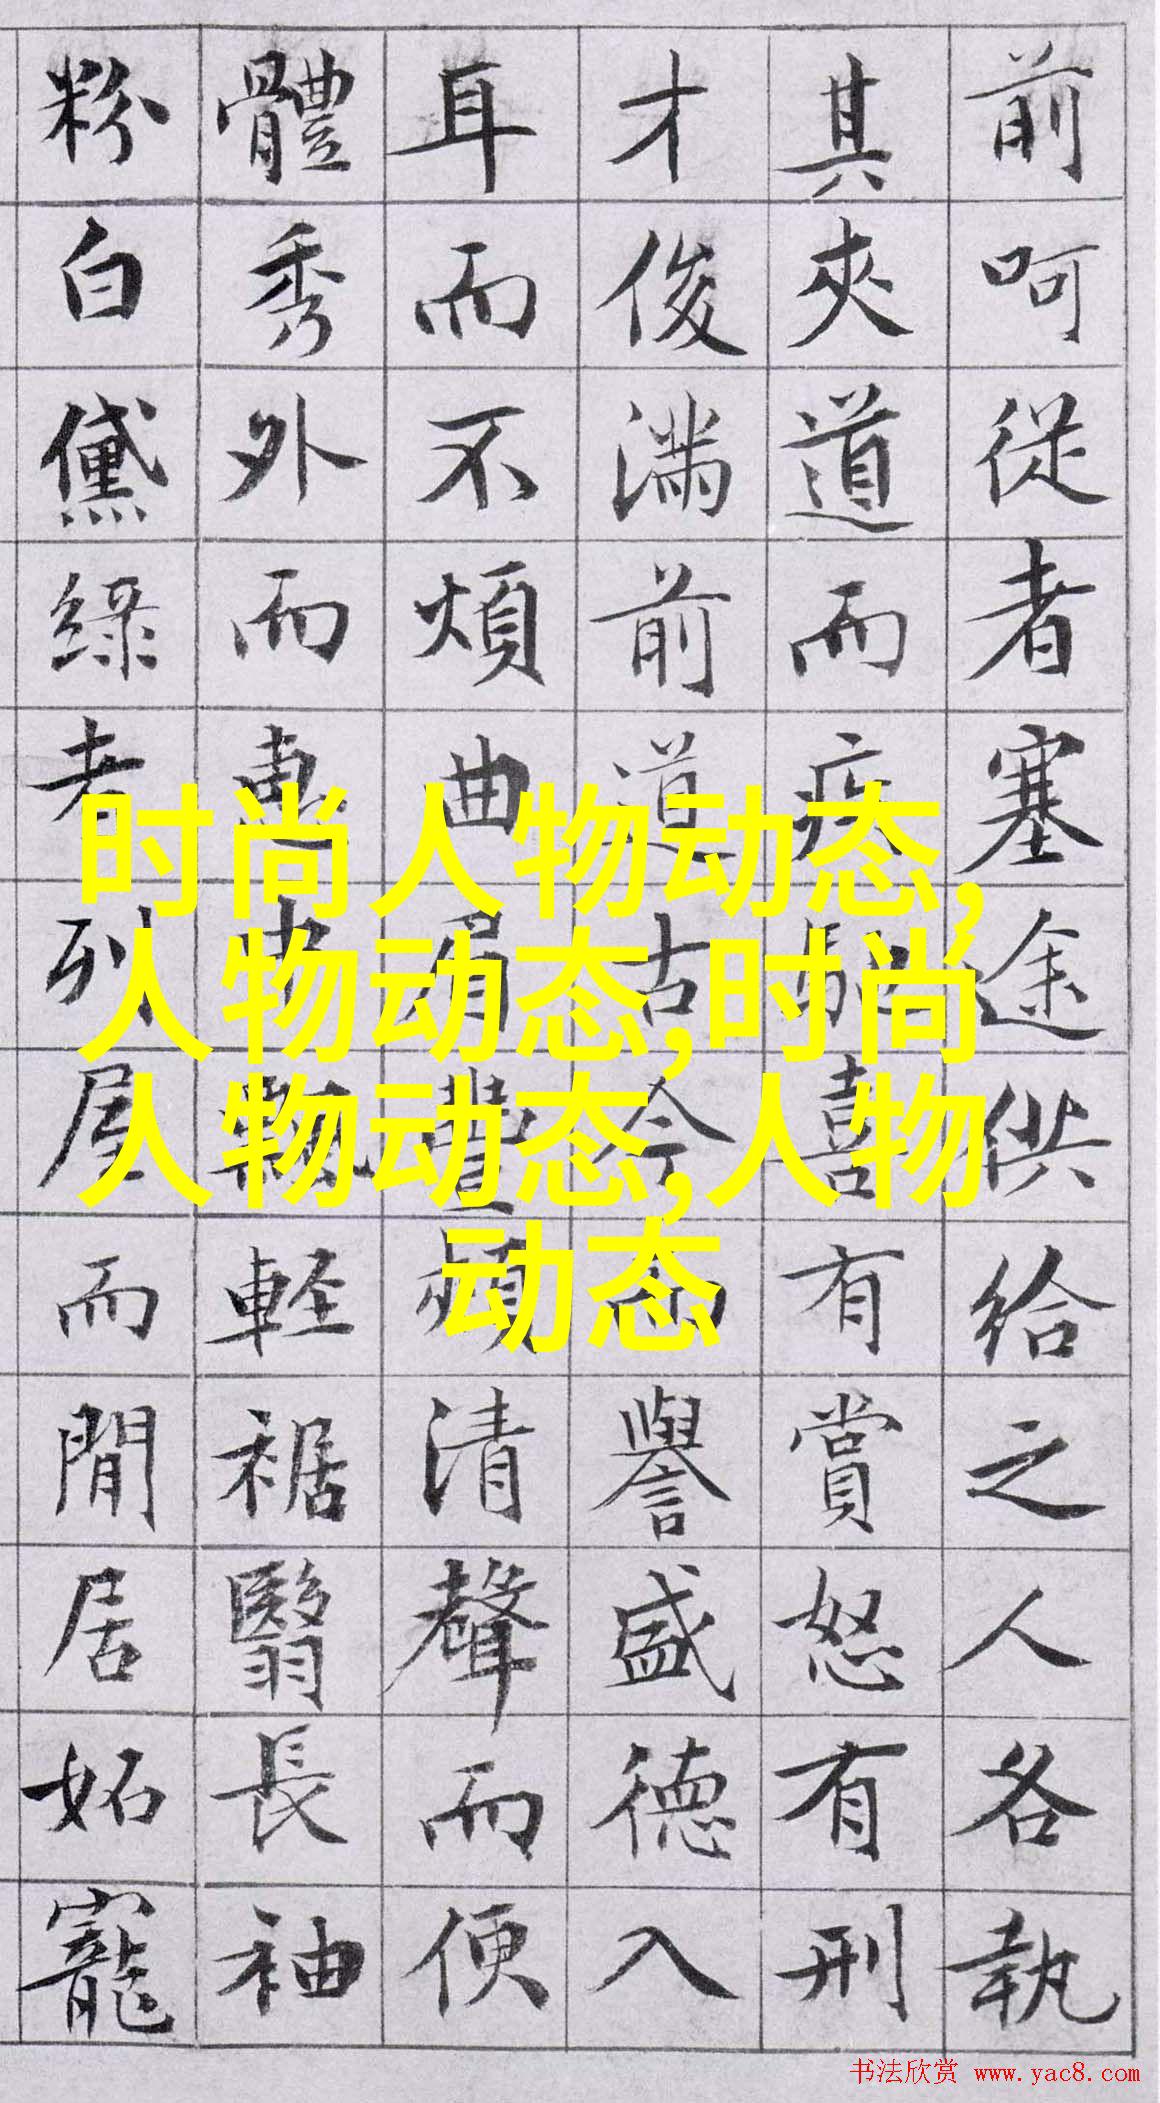 前呵從者塞途供給之人各執
其夾道而疾馳喜有賞怒有刑
才俊满前道古今而譽盛德入
耳而不煩曲眉豐頰清聲而便
體秀外而惠中飄軽裾翳長袖
粉白黛綠者列屋而閒居妬寵
时尚人物动态,
人物动态,时尚
人物动态,人物
动态
书法欣赏 www.yac8.com